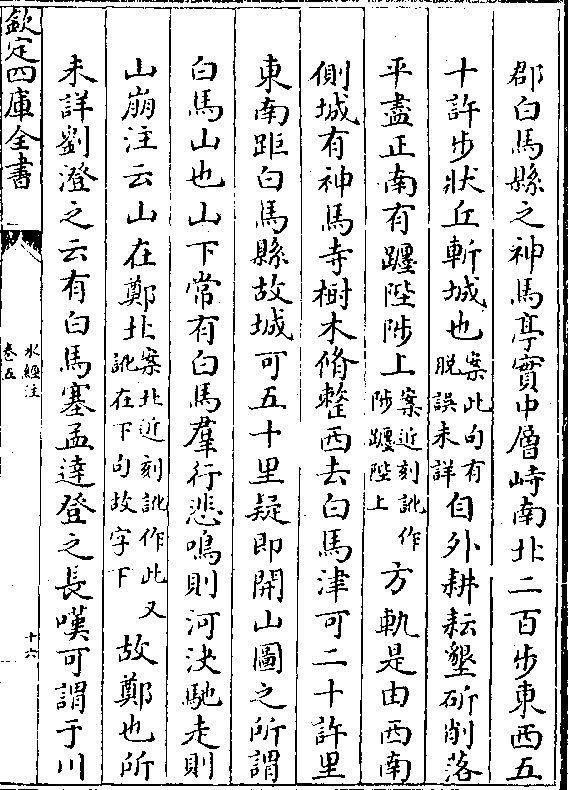 郡白馬縣之神馬亭實中層峙南北二百步東西五
十許步狀丘斬城也案此句有脫誤未詳自外耕耘墾斫削落
平盡正南有躔陛陟上案近刻訛作陟躔陛上方軌是由西南
側城有神馬寺樹木脩整西去白馬津可二十許里
東南距白馬縣故城可五十里疑即開山圖之所謂
白馬山也山下常有白馬羣行悲鳴則河決馳走則
山崩注云山在鄭北案北近刻訛作此又訛在下句故字下故鄭也所
未詳劉澄之云有白馬塞孟達登之長嘆可謂于川
欽定四庫全書
水經注
卷五
十六